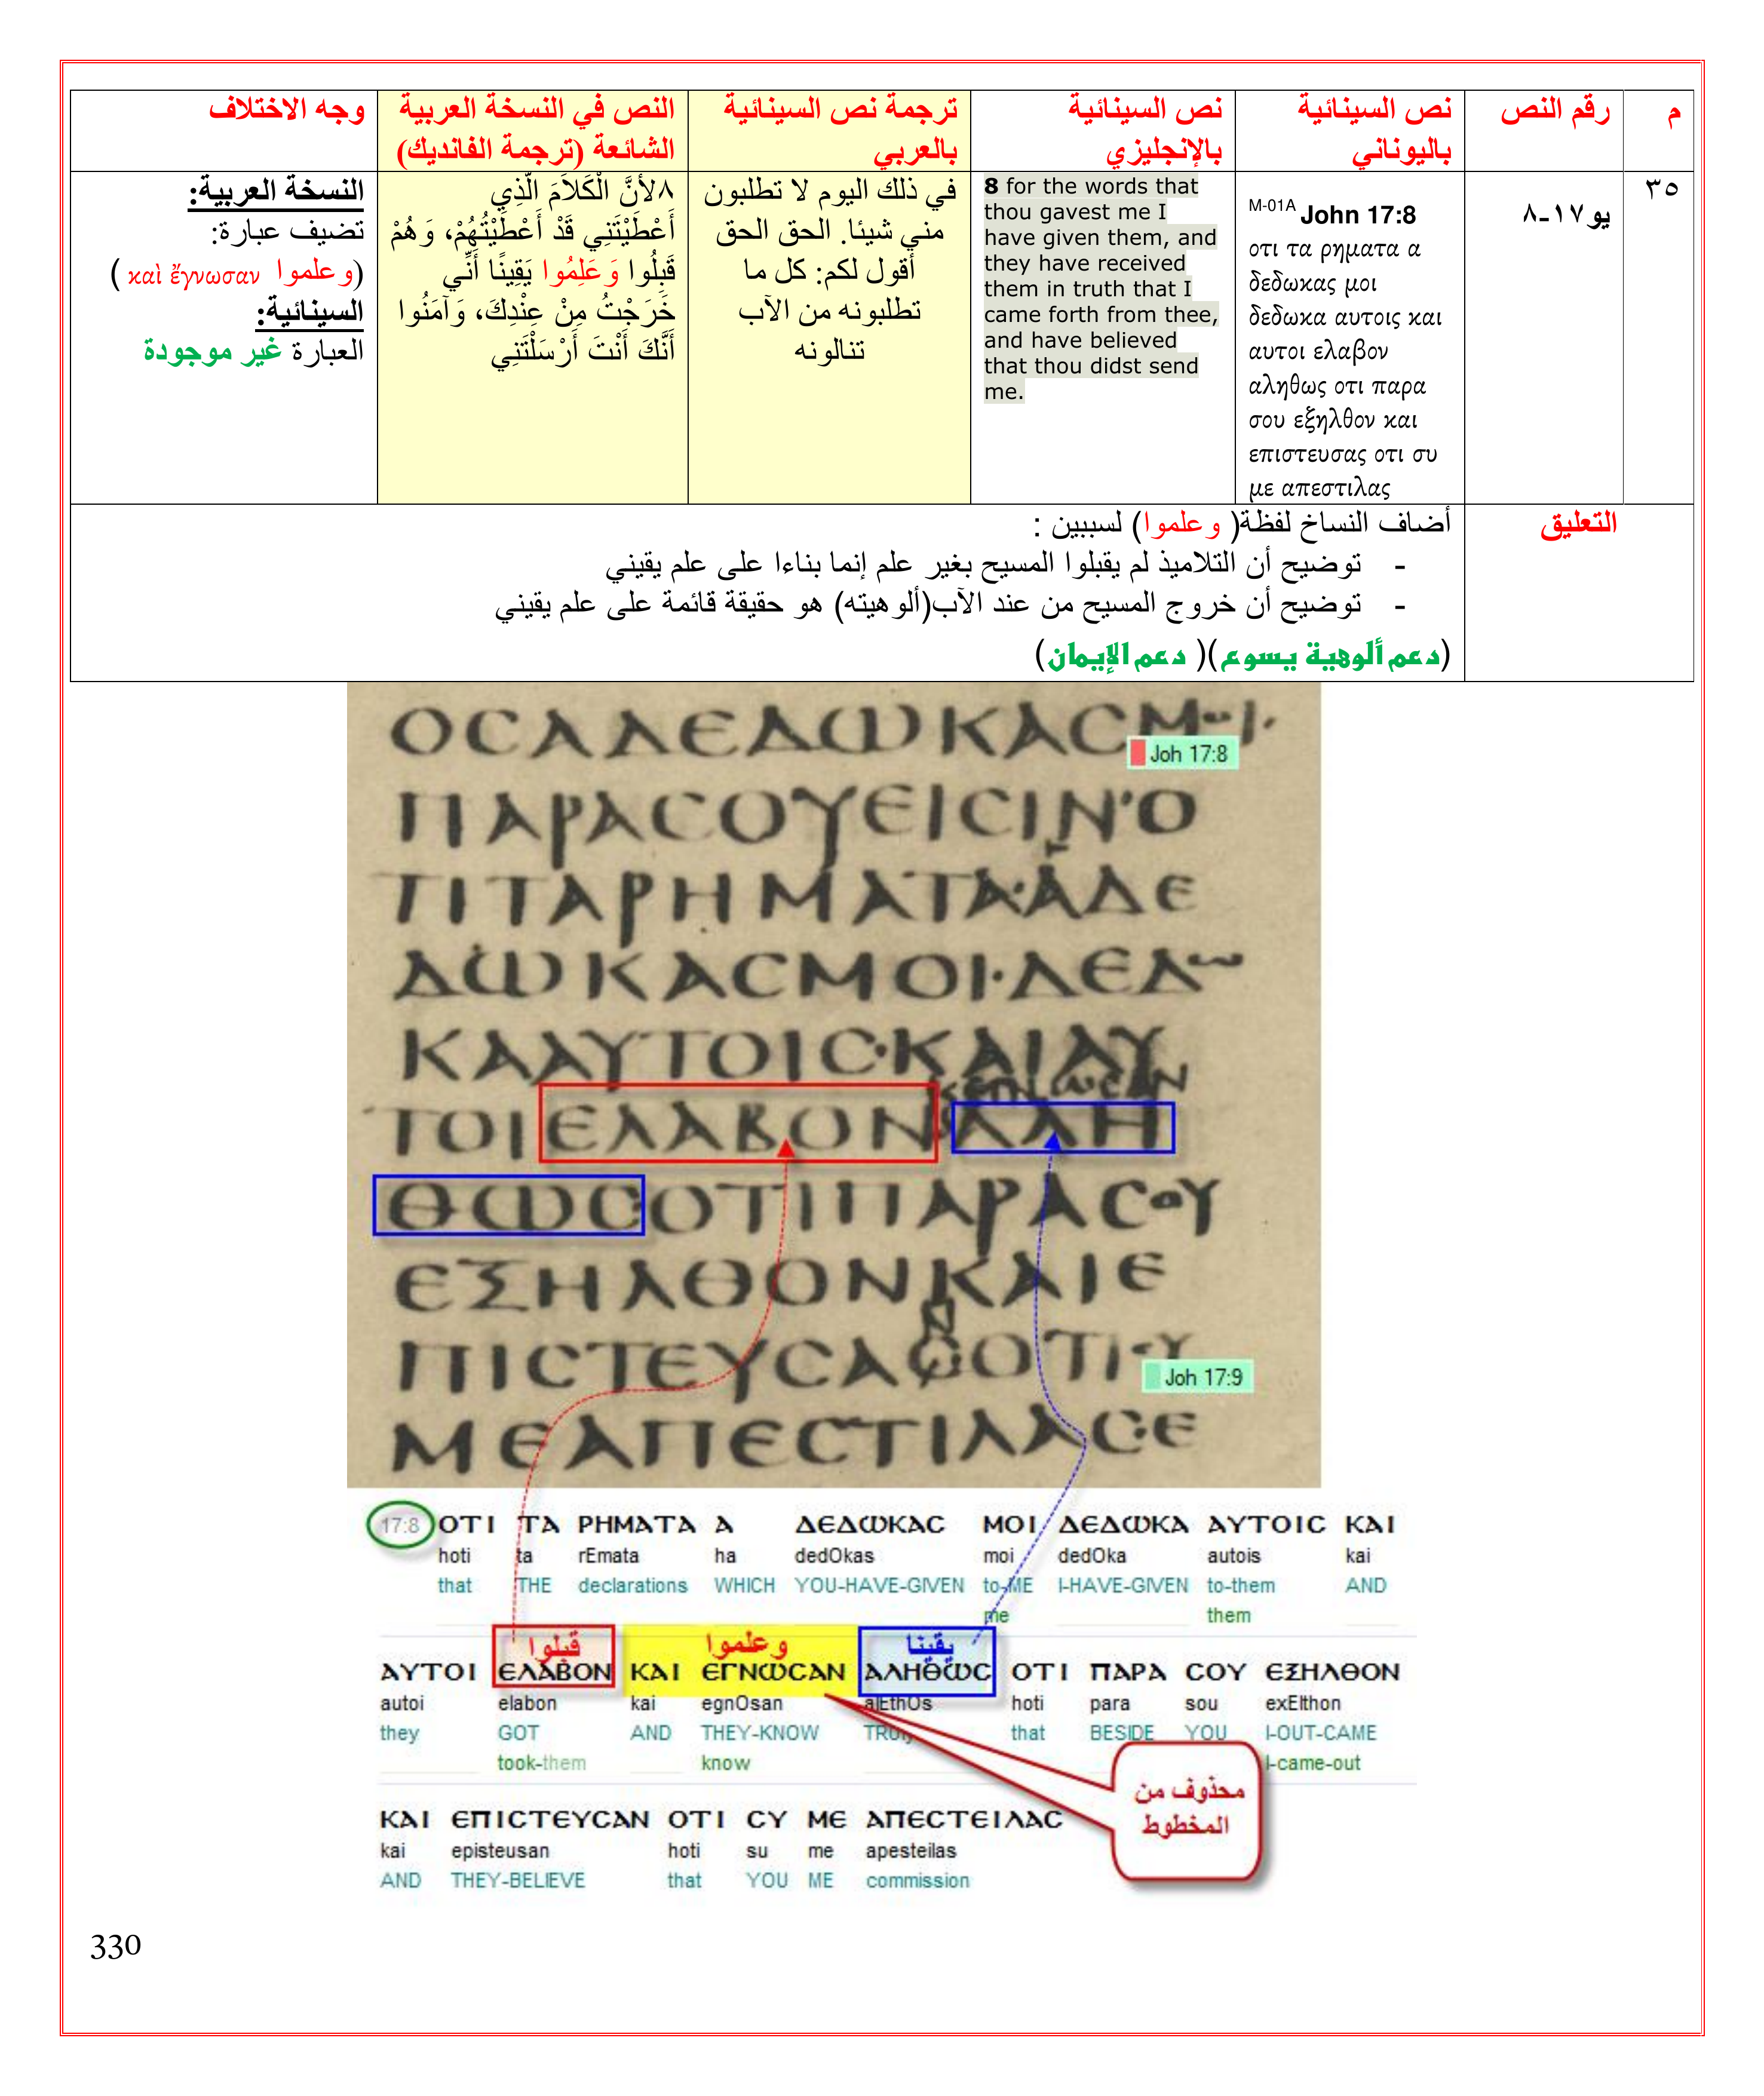 م
رقم النص
نص السينائية
باليوناني
نص السينائية
بالإنجليزي
ترجمة نص السينائية
بالعربي
النص في النسخة العربية
الشائعة (ترجمة الفانديك)
وجه الاختلاف
٣٥
يو ١٧-٨
M-01A John 17:8
οτι τα ρηματα α
δεδωκας μοι
δεδωκα αυτοις και
αυτοι ελαβον
αληθως οτι παρα
σου εξηλθον και
επιστευσας οτι συ
με απεστιλας
8 for the words that
thou gavest me I
have given them, and
they have received
them in truth that I
came forth from thee,
and have believed
that thou didst send
me.
في ذلك اليوم لا تطلبون
مني شيئا. الحق الحق
أقول لكم: كل ما
تطلبونه من الآب
تنالونه
٨لأَنَّ الْكَلاَمَ الَّذِي
أَعْطَيْتَنِي قَدْ أَعْطَيْتُهُمْ، وَهُمْ
قَبِلُوا وَعَلِمُوا يَقِينًا أَنِّي
خَرَجْتُ مِنْ عِنْدِكَ، وَآمَنُوا
أَنَّكَ أَنْتَ أَرْسَلْتَنِي
النسخة العربية:
تضيف عبارة:
(وعلموا καὶ ἔγνωσαν )
السينائية:
العبارة غير موجودة
التعليق
أضاف النساخ لفظة( وعلموا) لسببين :
- توضيح أن التلاميذ لم يقبلوا المسيح بغير علم إنما بناءا على علم يقيني
- توضيح أن خروج المسيح من عند الآب(ألوهيته) هو حقيقة قائمة على علم يقيني
(دعم ألوهية يسوع)( دعم الإيمان)
ΟСΑΔΕΔωΚΑСΜΟΙ·
Joh 17:8
ΠΑΡΑСΟΥΕΙСΙΝ'Ο
ΤΙΤΑΡΗΜΑΤΑ·ΑΔΕ
ΔωΚΑСΜΟΙ·ΔΕΔω
ΚΑΑΥΤΟΙС·ΚΑΙΑΥ
ΤΟΙΕΛΑΒΟΝΑΛΗ
ΘωСΟΤΙΠΑΡΑСΟΥ
ΕΞΗΛΘΟΝΚΑΙΕ
ΠΙСΤΕΥСΑСΟΤΙ
Joh 17:9
ΜΕΑΠΕСΤΙΛΑС·Ε
17:8 ΟΤΙ ΤΑ ΡΗΜΑΤΑ Α ΔΕΔωΚΑС ΜΟΙ ΔΕΔωΚΑ ΑΥΤΟΙС ΚΑΙ
hoti ta rEmata ha dedOkas moi dedOka autois kai
that THE declarations WHICH YOU-HAVE-GIVEN to-ME I-HAVE-GIVEN to-them AND
me them
قبلوا وعلموا يقينا
ΑΥΤΟΙ ΕΛΑΒΟΝ ΚΑΙ ΕΓΝωСΑΝ ΑΛΗΘωС ΟΤΙ ΠΑΡΑ СΟΥ ΕΞΗΛΘΟΝ
autoi elabon kai egnOsan alEthOs hoti para sou exElthon
they GOT AND THEY-KNOW TRULY that BESIDE YOU I-OUT-CAME
took-them know I-came-out
محذوف من
المخطوط
ΚΑΙ ΕΠΙСΤΕΥСΑΝ ΟΤΙ СΥ ΜΕ ΑΠΕСΤΕΙΛΑС
kai episteusan hoti su me apesteilas
AND THEY-BELIEVE that YOU ME commission
330